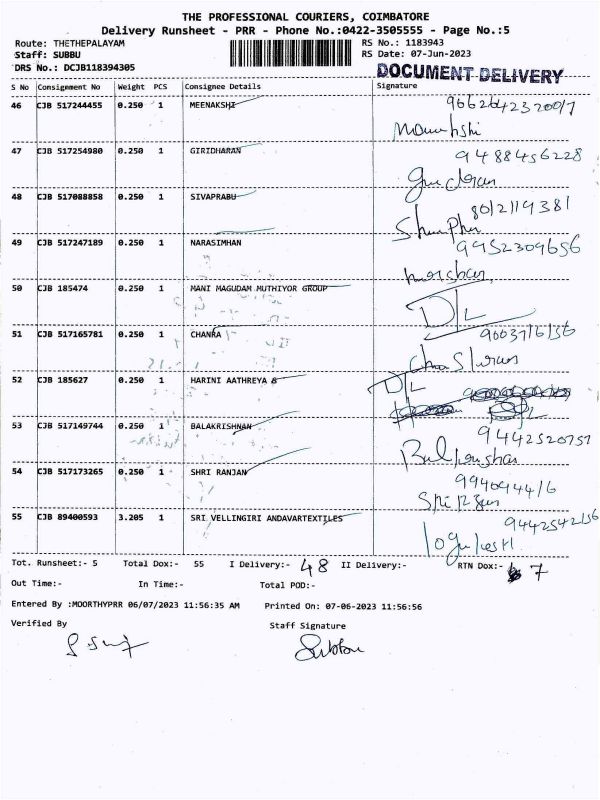 THE PROFESSIONAL COURIERS, COIMBATORE
Delivery Runsheet - PRR - Phone No.:0422-3505555 - Page No.:5
Route: THETHEPALAYAM RS No.: 1183943
Staff: SUBBU RS Date: 07-Jun-2023
DRS No.: DCJB118394305 DOCUMENT DELIVERY
S No Consignment No Weight PCS Consignee Details Signature
46 CJB 517244455 0.250 1 MEENAKSHI
47 CJB 517254980 0.250 1 GIRIDHARAN 9488456228
48 CJB 517088858 0.250 1 SIVAPRABU 8012119381
49 CJB 517247189 0.250 1 NARASIMHAN 9952309656
50 CJB 185474 0.250 1 MANI MAGUDAM MUTHIYOR GROUP D/L
51 CJB 517165781 0.250 1 CHANRA
52 CJB 185627 0.250 1 HARINI AATHREYA & D/L
53 CJB 517149744 0.250 1 BALAKRISHNAN 9442520757
54 CJB 517173265 0.250 1 SHRI RANJAN
55 CJB 89400593 3.205 1 SRI VELLINGIRI ANDAVARTEXTILES
Tot. Runsheet:- 5 Total Dox:- 55 I Delivery:- 48 II Delivery:- RTN Dox:- 7
Out Time:- In Time:- Total POD:-
Entered By :MOORTHYPRR 06/07/2023 11:56:35 AM Printed On: 07-06-2023 11:56:56
Verified By Staff Signature